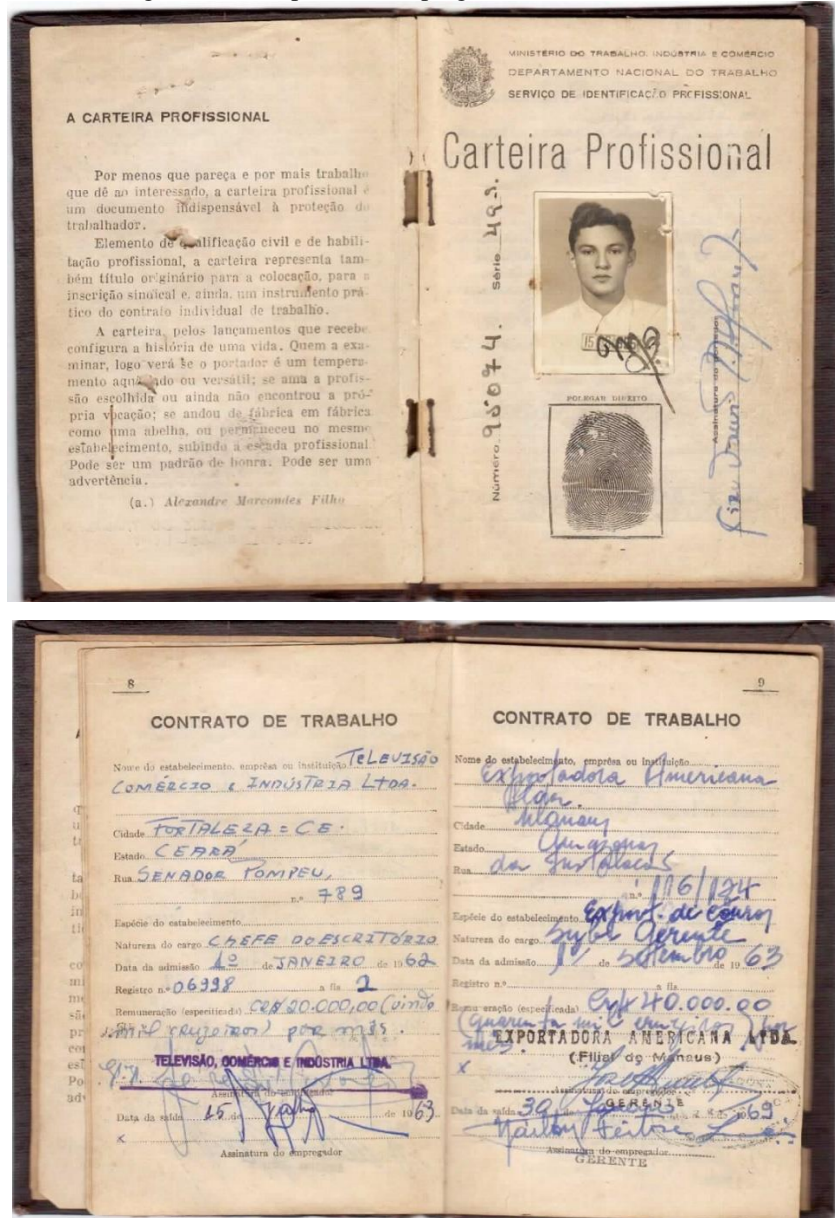 A CARTEIRA PROFISSIONAL
Por menos que pareça e por mais trabalho
que dê ao interessado, a carteira profissional é
um documento indispensável à proteção do
trabalhador.
Elemento de qualificação civil e de habili-
tação profissional, a carteira representa tam-
bém título originário para a colocação, para a
inscrição sindical e, ainda, um instrumento prá-
tico do contrato individual de trabalho.
A carteira, pelos lançamentos que recebe,
configura a história de uma vida. Quem a exa-
minar, logo verá se o portador é um tempera-
mento aquietado ou versátil; se ama a profis-
são escolhida ou ainda não encontrou a pró-
pria vocação; se andou de fábrica em fábrica
como uma abelha, ou permaneceu no mesmo
estabelecimento, subindo a escada profissional.
Pode ser um padrão de honra. Pode ser uma
advertência.
(a.) Alexandre Marcondes Filho
MINISTÉRIO DO TRABALHO, INDÚSTRIA E COMÉRCIO
DEPARTAMENTO NACIONAL DO TRABALHO
SERVIÇO DE IDENTIFICAÇÃO PROFISSIONAL
Carteira Profissional
Número 95074. Série 49ª.
POLEGAR DIREITO
Assinatura do portador
8
CONTRATO DE TRABALHO
Nome do estabelecimento, emprêsa ou instituição TELEVISÃO
COMÉRCIO E INDÚSTRIA LTDA.
Cidade FORTALEZA = CE.
Estado CEARÁ
Rua SENADOR POMPEU,
n.º 789
Espécie do estabelecimento
Natureza do cargo CHEFE DO ESCRITÓRIO
Data da admissão 1º de JANEIRO de 1962
Registro n.º 06998 a fls 2
Remuneração (especificada) CR$ 20.000,00 (vinte
mil cruzeiros) por mês.
TELEVISÃO, COMÉRCIO E INDÚSTRIA LTDA.
Assinatura do empregador
Data da saída 15 de de 1963
x
Assinatura do empregador
9
CONTRATO DE TRABALHO
Nome do estabelecimento, emprêsa ou instituição
Exportadora Americana
Ltda.
Cidade Manaus
Estado Amazonas
Rua das Instalações
n.º 116/124
Espécie do estabelecimento Export. de couros
Natureza do cargo Sub Gerente
Data da admissão 1º de Setembro de 1963
Registro n.º a fls
Remuneração (especificada) Cr$ 40.000.00
(quarenta mil cruzeiros) por
mês
EXPORTADORA AMERICANA LTDA.
(Filial de Manaus)
x
Assinatura do empregador
GERENTE
Data da saída 30 de de 1969
Assinatura do empregador
GERENTE